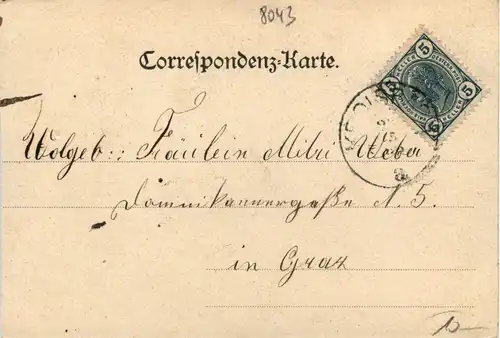 8043
Correspondenz-Karte.
5 5
HELLER HELLER
5 5
Wolgeb:: Fräulein Mitzi Weber
Dominikanergaße N. 5.
in Graz